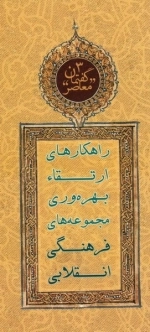 کفتمان ۳
معاصر
راهکارهای
ارتقاء
بهره‌وری
مجموعه‌های
فرهنگی
انقلابی